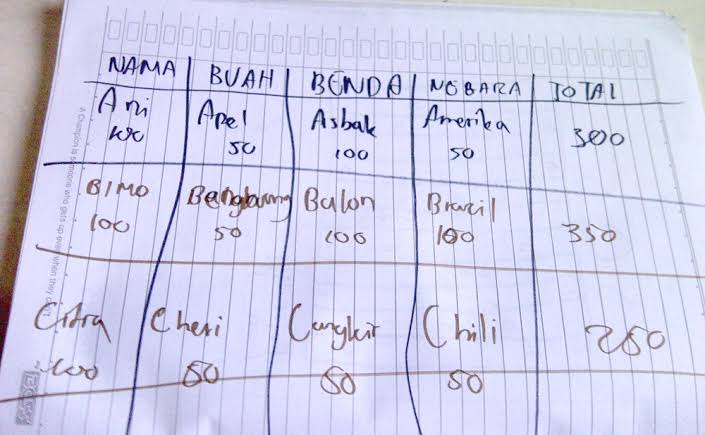 NAMA BUAH BENDA NEGARA TOTAL
Ani Apel Asbak Amerika 300
100 50 100 50
BIMO Bengkuang Balon Brazil 350
100 50 100 100
Citra Cheri Cangkir Chili 250
100 50 50 50
A Champion is someone who gets up even when they can't